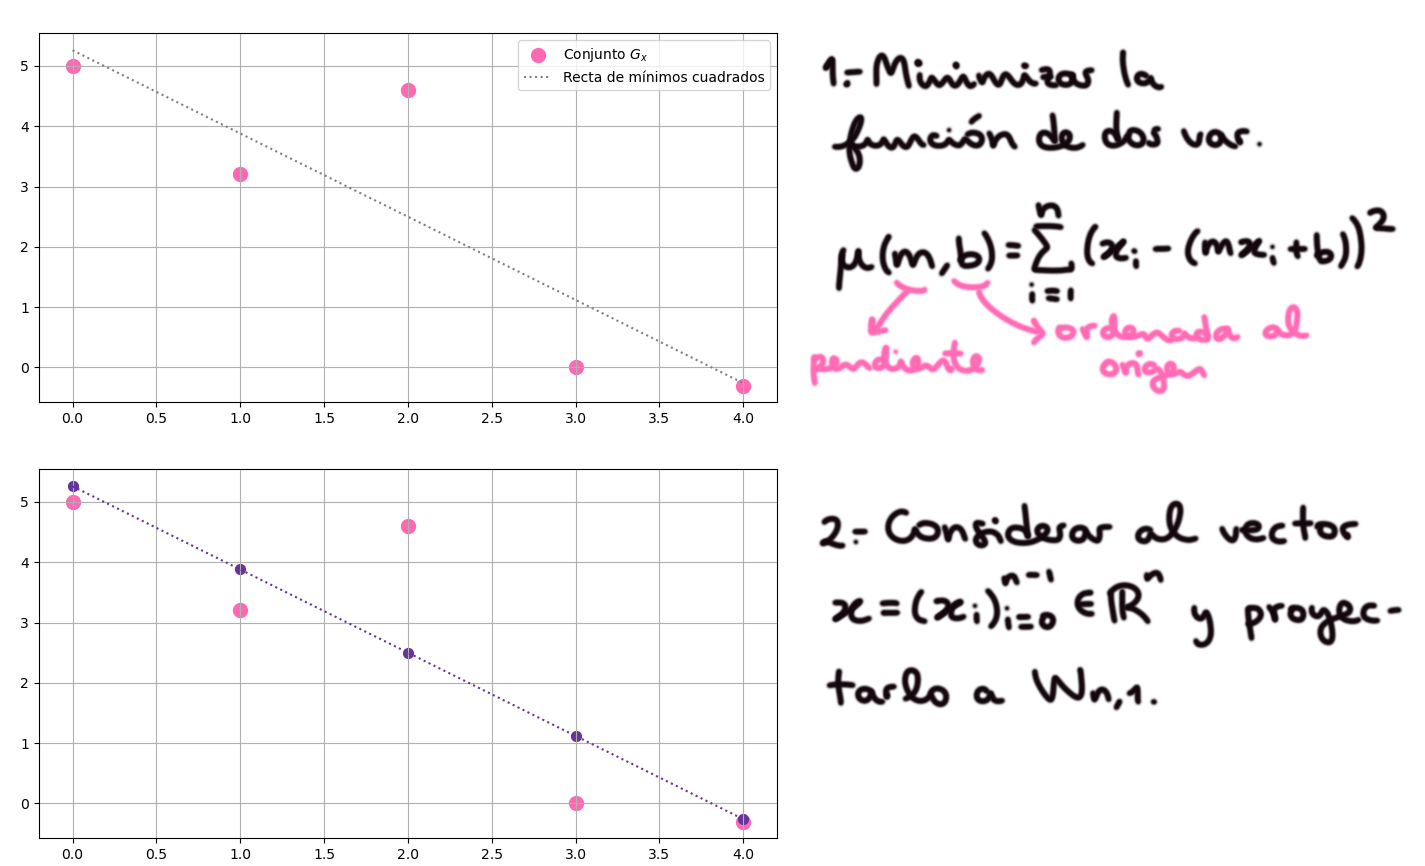 Conjunto Gₓ
Recta de mínimos cuadrados
5
4
3
2
1
0
0.0 0.5 1.0 1.5 2.0 2.5 3.0 3.5 4.0
1.- Minimizar la
función de dos var.
μ(m,b) = ∑ᵢ₌₁ⁿ (xᵢ - (mxᵢ+b))²
pendiente
ordenada al
origen
5
4
3
2
1
0
0.0 0.5 1.0 1.5 2.0 2.5 3.0 3.5 4.0
2.- Considerar al vector
x = (xᵢ)ᵢ₌₀ⁿ⁻¹ ∈ ℝⁿ y proyec-
tarlo a Wₙ,₁.